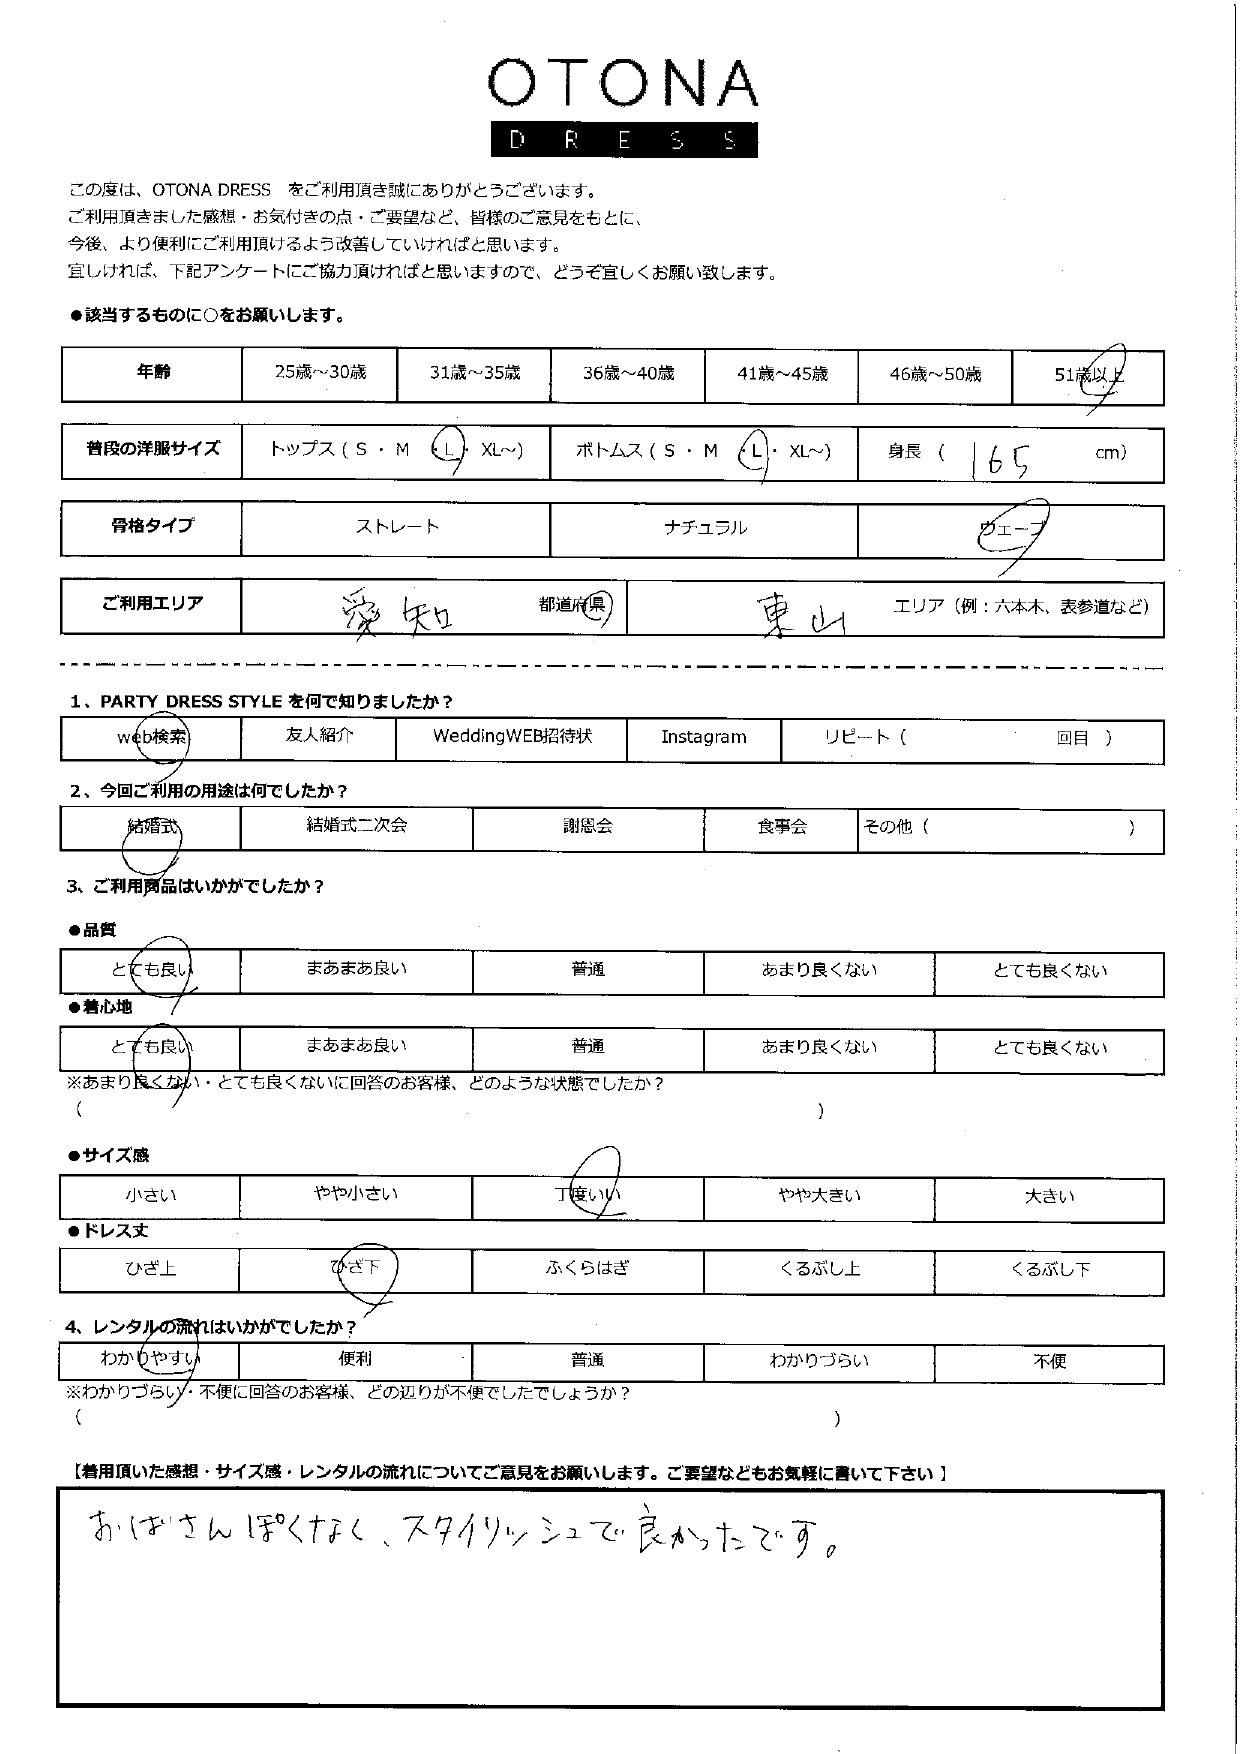 OTONA
DRESS
この度は、OTONA DRESS をご利用頂き誠にありがとうございます。
ご利用頂きました感想・お気付きの点・ご要望など、皆様のご意見をもとに、
今後、より便利にご利用頂けるよう改善していければと思います。
宜しければ、下記アンケートにご協力頂ければと思いますので、どうぞ宜しくお願い致します。
●該当するものに○をお願いします。
年齢 25歳～30歳 31歳～35歳 36歳～40歳 41歳～45歳 46歳～50歳 51歳以上
普段の洋服サイズ トップス ( S ・ M ・L・ XL～) ボトムス ( S ・ M ・L・ XL～) 身長 ( 165 cm)
骨格タイプ ストレート ナチュラル ウェーブ
ご利用エリア 愛知 都道府県 東山 エリア（例：六本木、表参道など）
1、PARTY DRESS STYLE を何で知りましたか？
web検索 友人紹介 WeddingWEB招待状 Instagram リピート ( 回目 )
2、今回ご利用の用途は何でしたか？
結婚式 結婚式二次会 謝恩会 食事会 その他 ( )
3、ご利用商品はいかがでしたか？
●品質
とても良い まあまあ良い 普通 あまり良くない とても良くない
●着心地
とても良い まあまあ良い 普通 あまり良くない とても良くない
※あまり良くない・とても良くないに回答のお客様、どのような状態でしたか？
( )
●サイズ感
小さい やや小さい 丁度いい やや大きい 大きい
●ドレス丈
ひざ上 ひざ下 ふくらはぎ くるぶし上 くるぶし下
4、レンタルの流れはいかがでしたか？
わかりやすい 便利 普通 わかりづらい 不便
※わかりづらい・不便に回答のお客様、どの辺りが不便でしたでしょうか？
( )
【着用頂いた感想・サイズ感・レンタルの流れについてご意見をお願いします。ご要望などもお気軽に書いて下さい 】
おばさんぽくなく、スタイリッシュで良かったです。